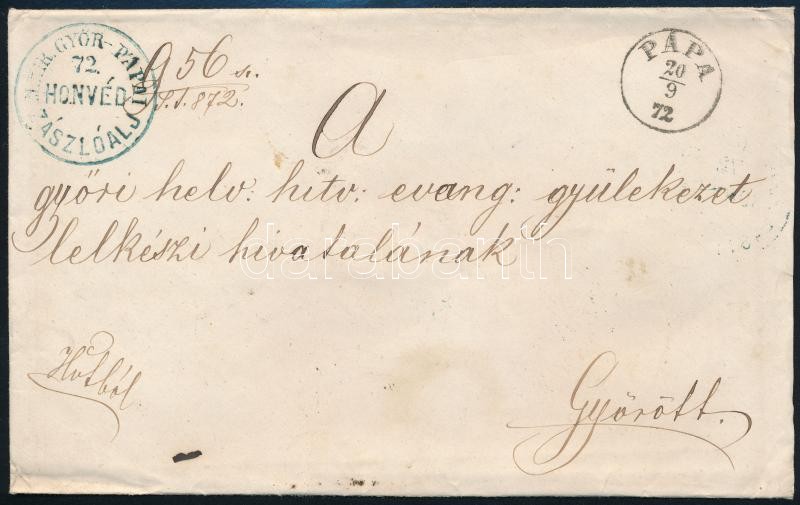 GYŐR-PÁPAI
72.
HONVÉD
ZÁSZLÓALJ
956
872.
PÁPA
20
9
72
A
győri helv: hitv: evang: gyülekezet
lelkészi hivatalának
Győrött.
darabanth